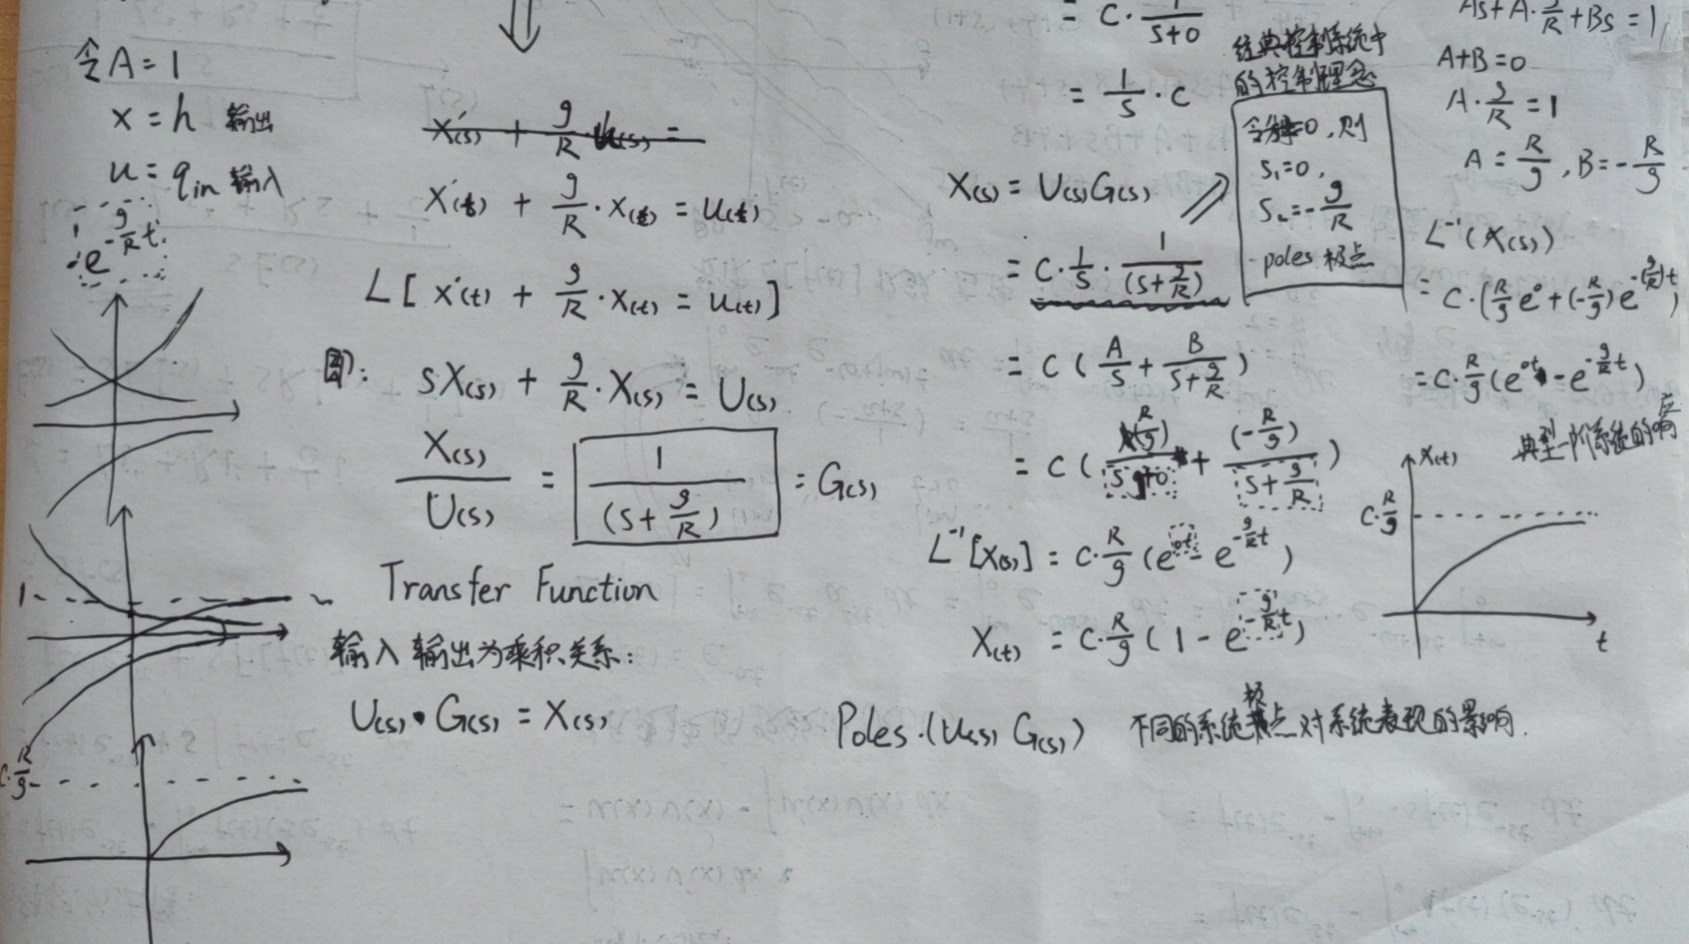 令A=1
x = h 输出
u = q_in 输入
e^{-\frac{g}{R}t}
1
C·\frac{R}{g}
⇓
x'(s) + \frac{g}{R} u(s) =
x'(t) + \frac{g}{R}·x(t) = u(t)
L[ x'(t) + \frac{g}{R}·x(t) = u(t)]
则:
sX(s) + \frac{g}{R}·X(s) = U(s)
\frac{X(s)}{U(s)} = \frac{1}{(s+\frac{g}{R})} = G(s)
Transfer Function
输入输出为乘积关系:
U(s)·G(s) = X(s)
= C·\frac{1}{s+0}
= \frac{1}{s}·C
X(s) = U(s)G(s)
= C·\frac{1}{s}·\frac{1}{(s+\frac{g}{R})}
= C(\frac{A}{s}+\frac{B}{s+\frac{g}{R}})
= C(\frac{(\frac{R}{g})}{s+0}+\frac{(-\frac{R}{g})}{s+\frac{g}{R}})
L^{-1}[X(s)] = C·\frac{R}{g}(e^{0t} - e^{-\frac{g}{R}t})
X(t) = C·\frac{R}{g}(1 - e^{-\frac{g}{R}t})
Poles.(U(s) G(s)) 不同的系统极点对系统表现的影响.
经典控制系统中
的控制理念
=0,则
s₁=0,
s₂=-\frac{g}{R}
poles 极点
As+A·\frac{g}{R}+Bs=1
A+B=0
A·\frac{g}{R}=1
A=\frac{R}{g}, B=-\frac{R}{g}
L^{-1}(X(s))
= C·(\frac{R}{g}e^0+(-\frac{R}{g})e^{-(\frac{g}{R})t})
=C·\frac{R}{g}(e^{0t}-e^{-\frac{g}{R}t})
典型一阶系统的响应
x(t)
C·\frac{R}{g}
t